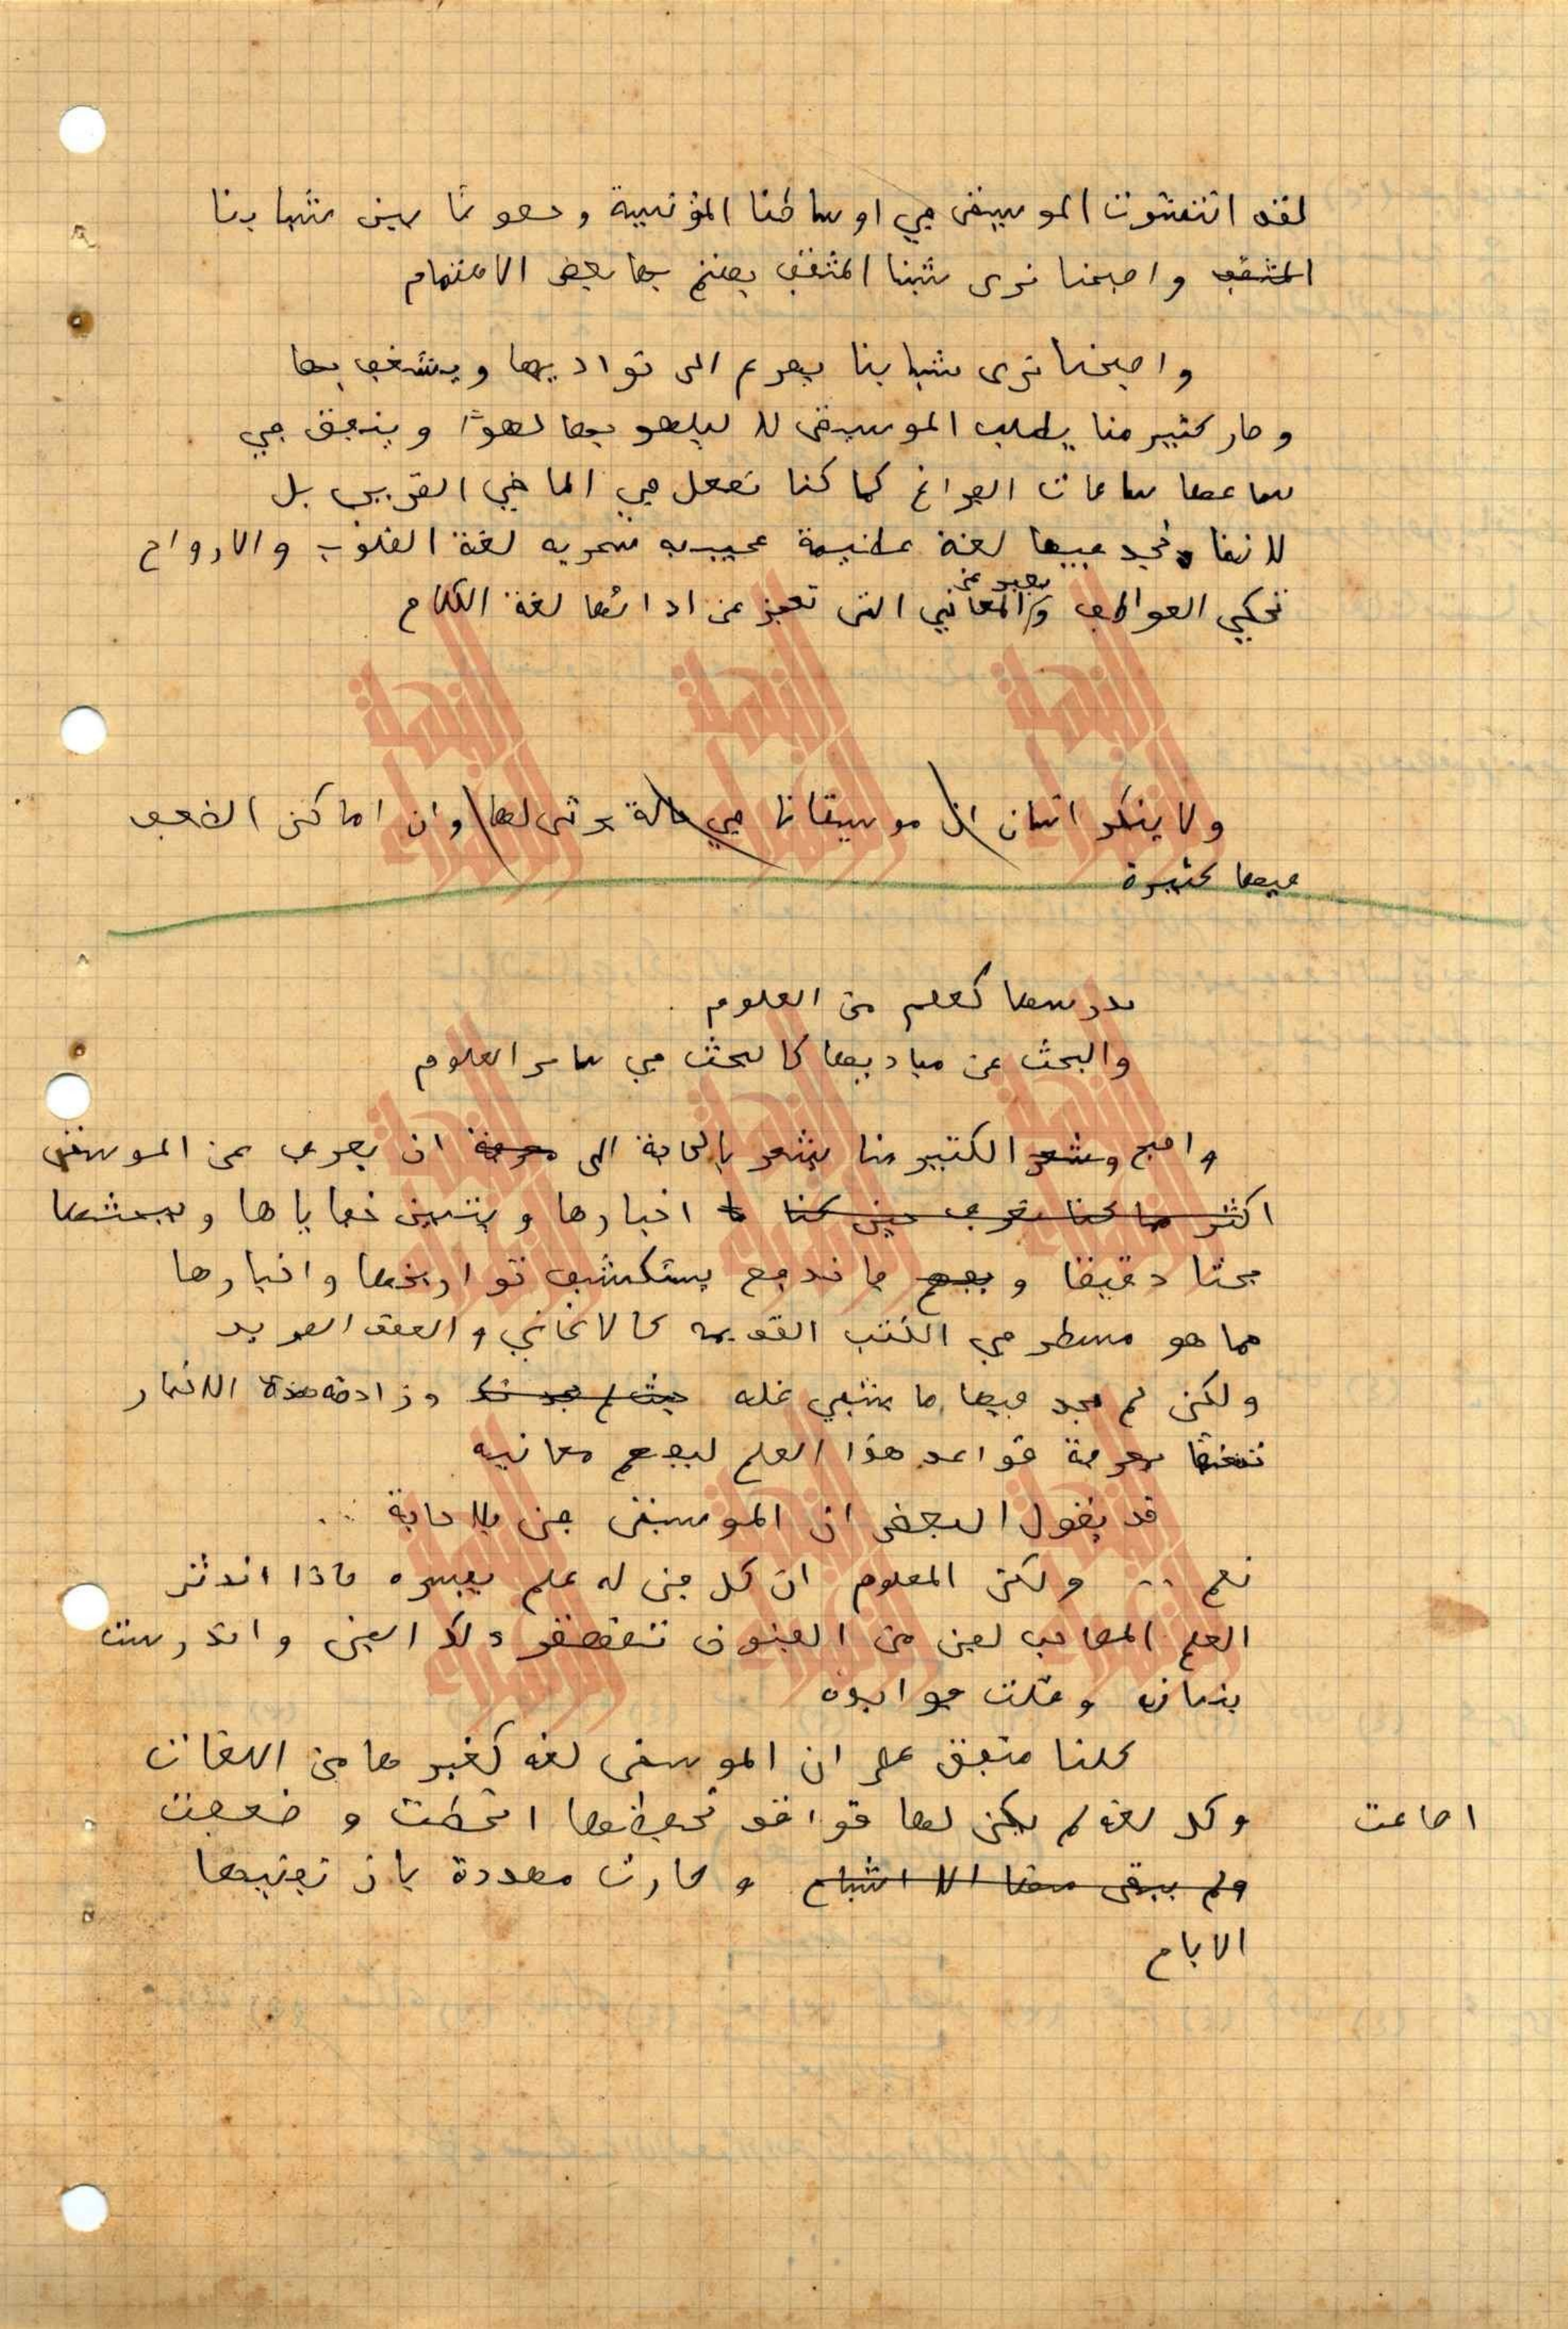 لقد انتشرت الموسيقى في اوساطنا التونسية وخصوصًا بين شبابنا
المثقف واصبحنا نرى شبنا المثقف يهتم بها بعض الاهتمام
واصبحنا نرى شبابنا يهرع الى نواديها ويشغف بها
وصار كثير منا يطلب الموسيقى لا ليلهو بها لهوًا وينفق في
سماعها ساعات الفراغ كما كنا نفعل في الماضي القريب بل
لاننا نجد فيها لغة عظيمة عجيبة سحرية لغة القلوب والارواح
تحكي العواطف و تعبر عن المعاني التي تعجز عن ادائها لغة الكلام
ولا ينكر انسان ان موسيقانا في حالة يرثى لها وان اماكن الضعف
فيها كثيرة
ندرسها كعلم من العلوم
والبحث عن مباديها كالبحث في سائر العلوم
واصبح وشعر الكثير منا يشعر بالحاجة الى معرفة ان يعرف عن الموسيقى
اكثر مما كنا نعرف حين كنا اخبارها ويتبين خفاياها ويبحثها
بحثا دقيقا و فاندفع يستكشف تواريخها واخبارها
مما هو مسطر في الكتب القديمة كالاغاني والعقد الفريد
ولكن لم يجد فيها ما يشفي غله حيث لم يجد وزادته هذه الاخبار
تعشقا لمعرفة قواعد هذا العلم ليفهم معانيه
قد يقول البعض ان الموسيقى فن بلا حاجة ...
نعم .. ولكن المعلوم ان كل فن له علم يسيره فاذا اندثر
العلم المصاحب لفن من الفنون تقهقر ذلك الفن واندرست
وقلت فوايده
كلنا متفق على ان الموسيقى لغة كغيرها من اللغات
وكل لغة لم يكن لها قواعد تحفظها انحطت وضعفت
اضاعت
ولم يبقى منها الا اشباح وصارت مهددة بان تفنيها
الايام